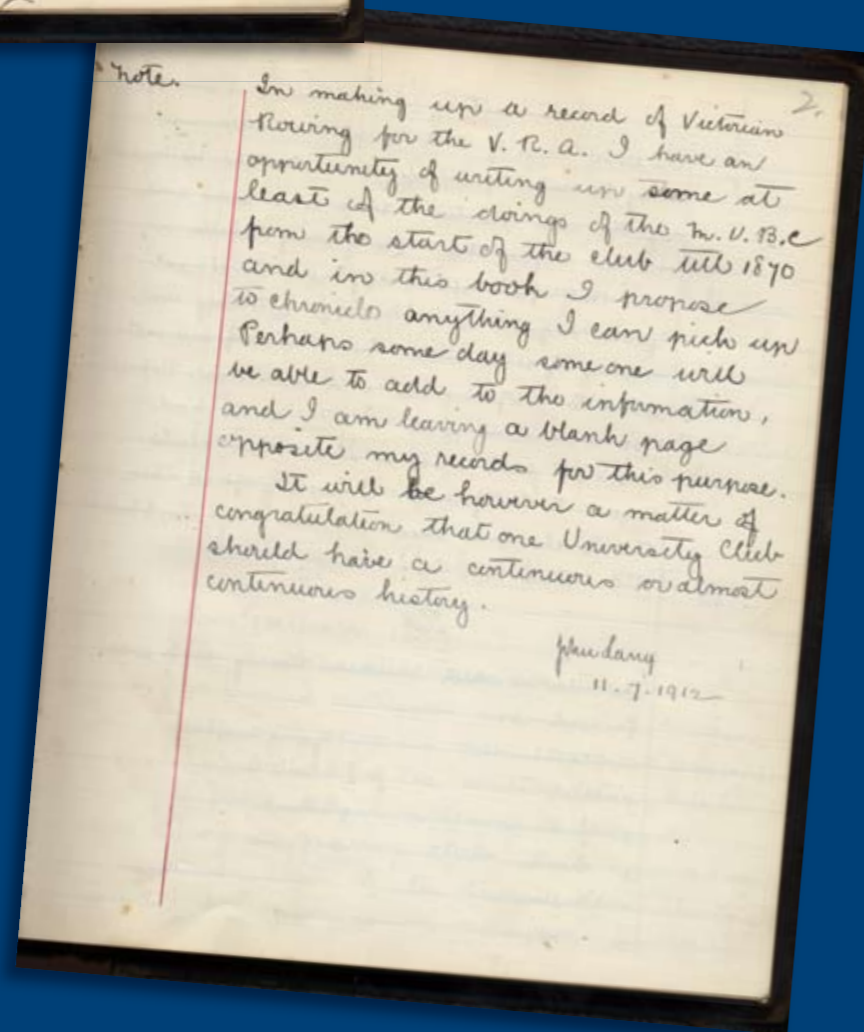 2.
Note.
In making up a record of Victorian
Rowing for the V.R.A. I have an
opportunity of writing up some at
least of the doings of the M.U.B.C
from the start of the club till 1870
and in this book I propose
to chronicle anything I can pick up
Perhaps some day someone will
be able to add to the information,
and I am leaving a blank page
opposite my records for this purpose.
It will be however a matter of
congratulation that one University Club
should have a continuous or almost
continuous history.
11.7.1912